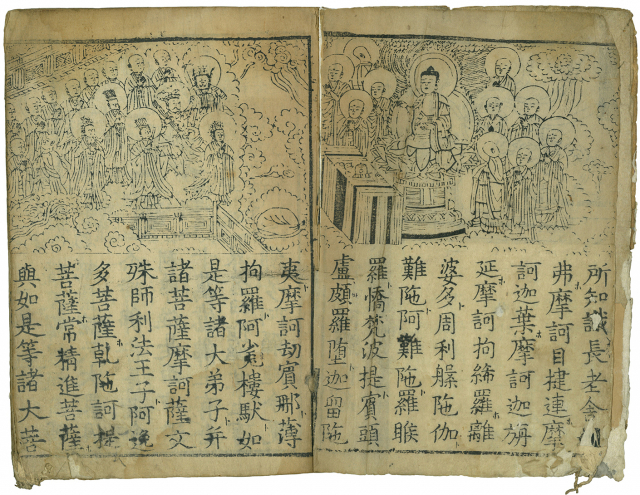 所知識長老舍
弗摩訶目揵連摩
訶迦葉摩訶迦旃
延摩訶拘絺羅離
婆多周利槃陁伽
難陁阿難陁羅睺
羅憍梵波提賓頭
盧頗羅墮迦留陁
夷摩訶劫賓那薄
拘羅阿㝹樓馱如
是等諸大弟子并
諸菩薩摩訶薩文
殊師利法王子阿逸
多菩薩乹陁訶提
菩薩常精進菩薩
與如是等諸大菩